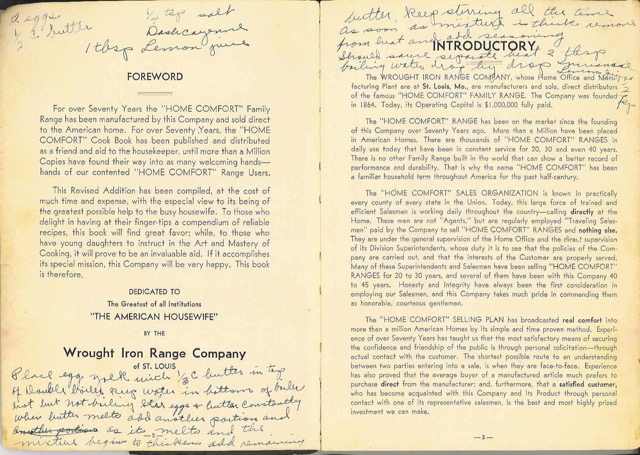 2 eggs
1/2 c butter
1/4 tsp salt
Dash cayenne
1 tbsp Lemon juice
FOREWORD
For over Seventy Years the "HOME COMFORT" Family
Range has been manufactured by this Company and sold direct
to the American home. For over Seventy Years, the "HOME
COMFORT" Cook Book has been published and distributed
as a friend and aid to the housekeeper, until more than a Million
Copies have found their way into as many welcoming hands—
hands of our contented "HOME COMFORT" Range Users.
This Revised Addition has been compiled, at the cost of
much time and expense, with the especial view to its being of
the greatest possible help to the busy housewife. To those who
delight in having at their finger-tips a compendium of reliable
recipes, this book will find great favor; while, to those who
have young daughters to instruct in the Art and Mastery of
Cooking, it will prove to be an invaluable aid. If it accomplishes
its special mission, this Company will be very happy. This book
is therefore,
DEDICATED TO
The Greatest of all Institutions
"THE AMERICAN HOUSEWIFE"
BY THE
Wrought Iron Range Company
of ST. LOUIS
Place egg yolk with 1/3 c butter in top
of double boiler keep water in bottom of boiler
hot but not boiling Stir eggs & butter constantly
when butter melts add another portion and
another portion as it melts and the
mixture begins to thicken add remaining
butter, keep stirring all the time
as soon as mixture is thick remove
from heat and add seasoning
Should sauce separate beat 2 tbsp
boiling water drop by drop
INTRODUCTORY
The WROUGHT IRON RANGE COMPANY, whose Home Office and Manu-
facturing Plant are at St. Louis, Mo., are manufacturers and sole, direct distributors
of the famous "HOME COMFORT" FAMILY RANGE. The Company was founded
in 1864. Today, its Operating Capital is $1,000,000 fully paid.
The "HOME COMFORT" RANGE has been on the market since the founding
of this Company over Seventy Years ago. More than a Million have been placed
in American Homes. There are thousands of "HOME COMFORT" RANGES in
daily use today that have been in constant service for 20, 30 and even 40 years.
There is no other Family Range built in the world that can show a better record of
performance and durability. That is why the name "HOME COMFORT" has been
a familiar household term throughout America for the past half-century.
The "HOME COMFORT" SALES ORGANIZATION is known in practically
every county of every state in the Union. Today, this large force of trained and
efficient Salesmen is working daily throughout the country—calling directly at the
Home. These men are not "Agents," but are regularly employed "Traveling Sales-
men" paid by the Company to sell "HOME COMFORT" RANGES and nothing else.
They are under the general supervision of the Home Office and the direct supervision
of its Division Superintendents, whose duty it is to see that the policies of the Com-
pany are carried out, and that the interests of the Customer are properly served.
Many of these Superintendents and Salesmen have been selling "HOME COMFORT"
RANGES for 20 to 30 years, and several of them have been with this Company 40
to 45 years. Honesty and Integrity have always been the first consideration in
employing our Salesmen, and this Company takes much pride in commending them
as honorable, courteous gentlemen.
The "HOME COMFORT" SELLING PLAN has broadcasted real comfort into
more than a million American Homes by its simple and time proven method. Experi-
ence of over Seventy Years has taught us that the most satisfactory means of securing
the confidence and friendship of the public is through personal solicitation—through
actual contact with the customer. The shortest possible route to an understanding
between two parties entering into a sale, is when they are face-to-face. Experience
has also proved that the average buyer of a manufactured article much prefers to
purchase direct from the manufacturer; and, furthermore, that a satisfied customer,
who has become acquainted with this Company and its Product through personal
contact with one of its representative salesmen, is the best and most highly prized
investment we can make.
—3—